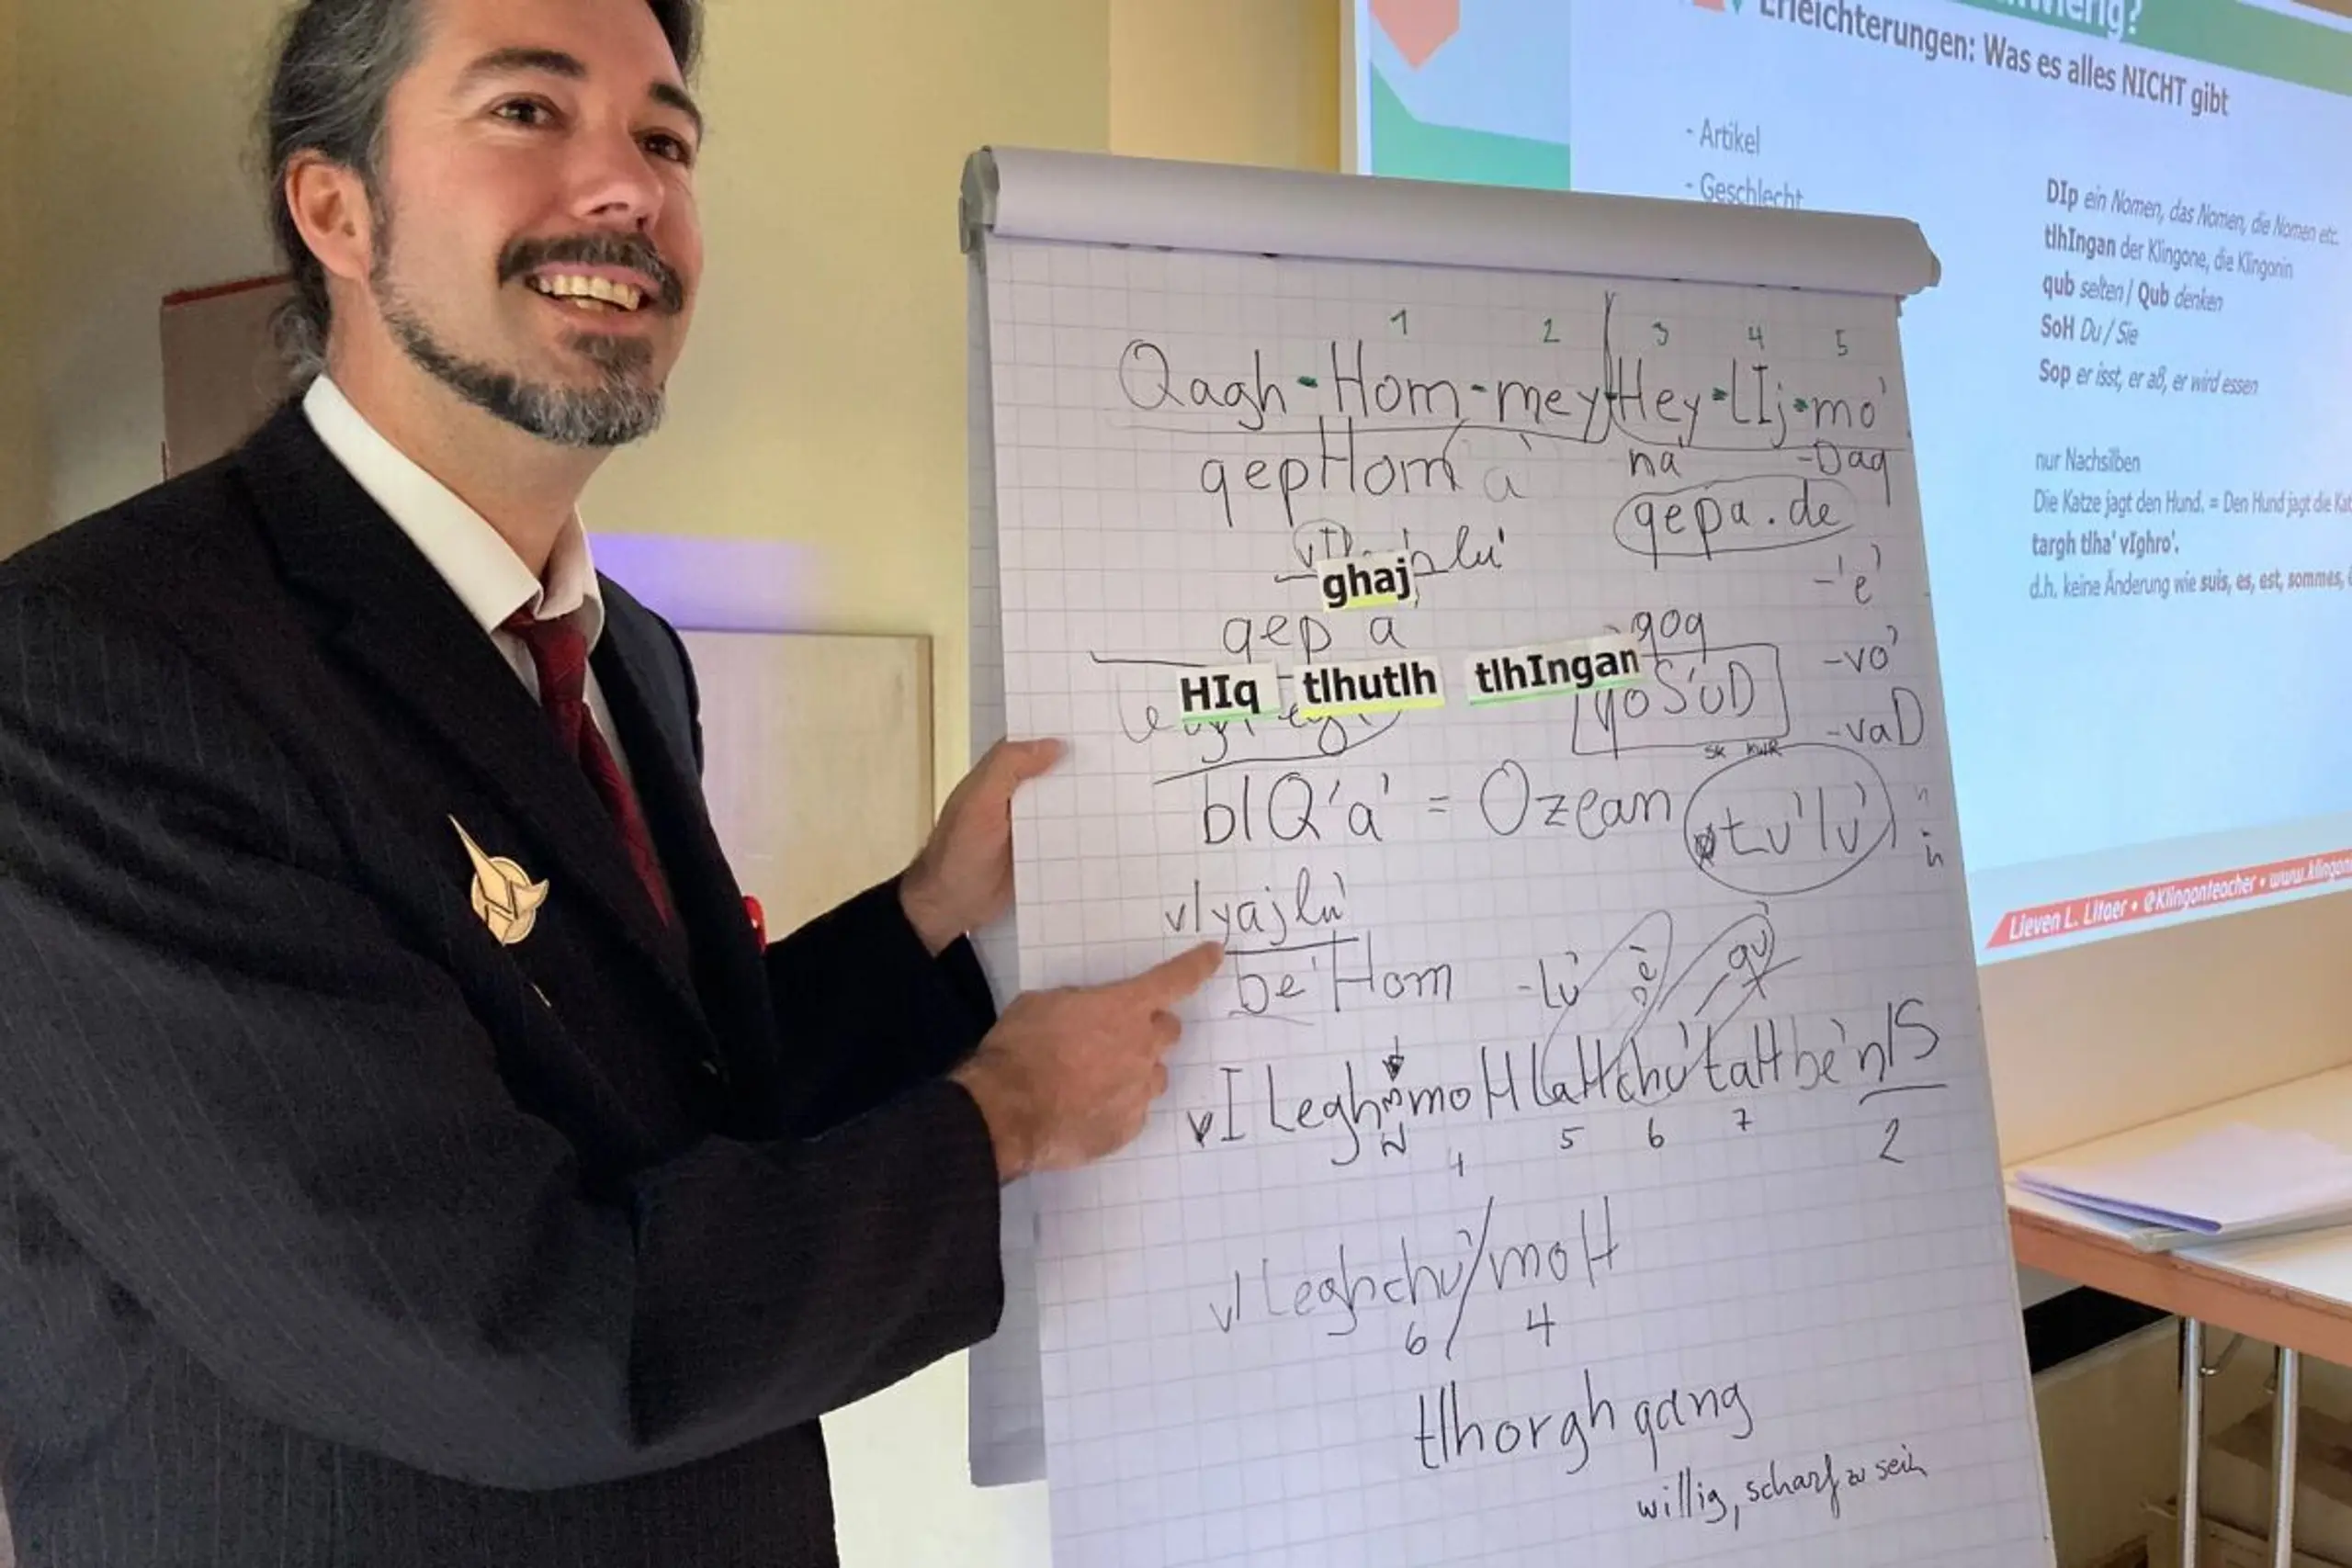 Erleichterungen: Was es alles NICHT gibt
- Artikel
- Geschlecht
DIp ein Nomen, das Nomen, die Nomen etc.
tlhIngan der Klingone, die Klingonin
qub selten / Qub denken
SoH Du / Sie
Sop er isst, er aß, er wird essen
nur Nachsilben
Die Katze jagt den Hund. = Den Hund jagt die
targh tlha' vIghro'.
d.h. keine Änderung wie suis, es, est, sommes,
Lieven L. Litaer • @Klingonteacher •
1 2 3 4 5
Qagh-Hom-mey-Hey-lIj-mo'
qepHom a'
na' -Daq
qepa.de
lu'
ghaj
-'e'
qep a
qoq
-vo'
HIq tlhutlh tlhIngan
yoSuD
-vaD
bIQ'a' = Ozean
tu'lu'
vIyajlu'
be'Hom -lu' qu'
vIleghmoHlaHchu'taHbe'nIS
4 5 6 7 2
vIleghchu'/moH
6 4
tlhorghqang
willig, scharf zu sein